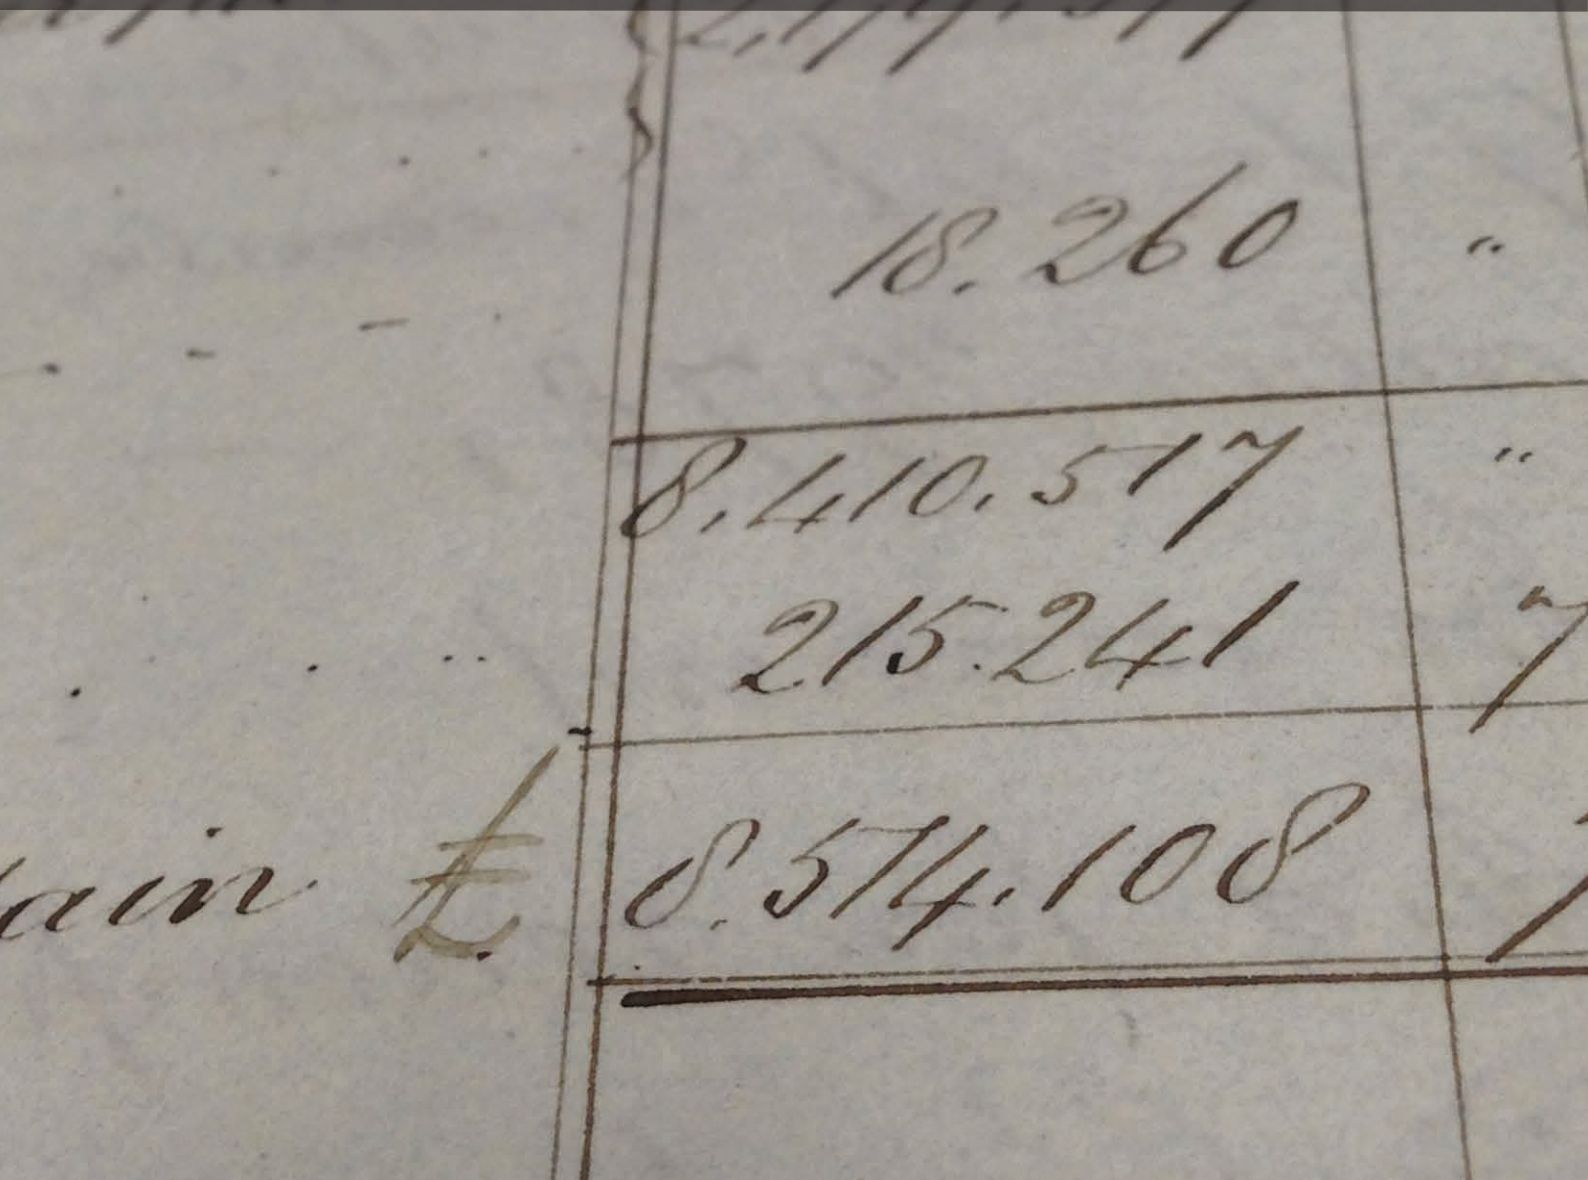 18.260 "
8,410,517 "
215.241 7
tain £ 8.574.108 7